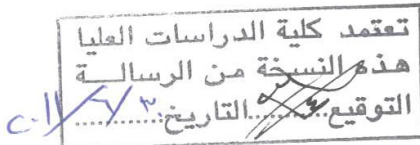 تعتمد كلية الدراسات العليا
هذه النسخة من الرسالــة
التوقيع............التاريخ: ٣٠/٦/٢٠١١